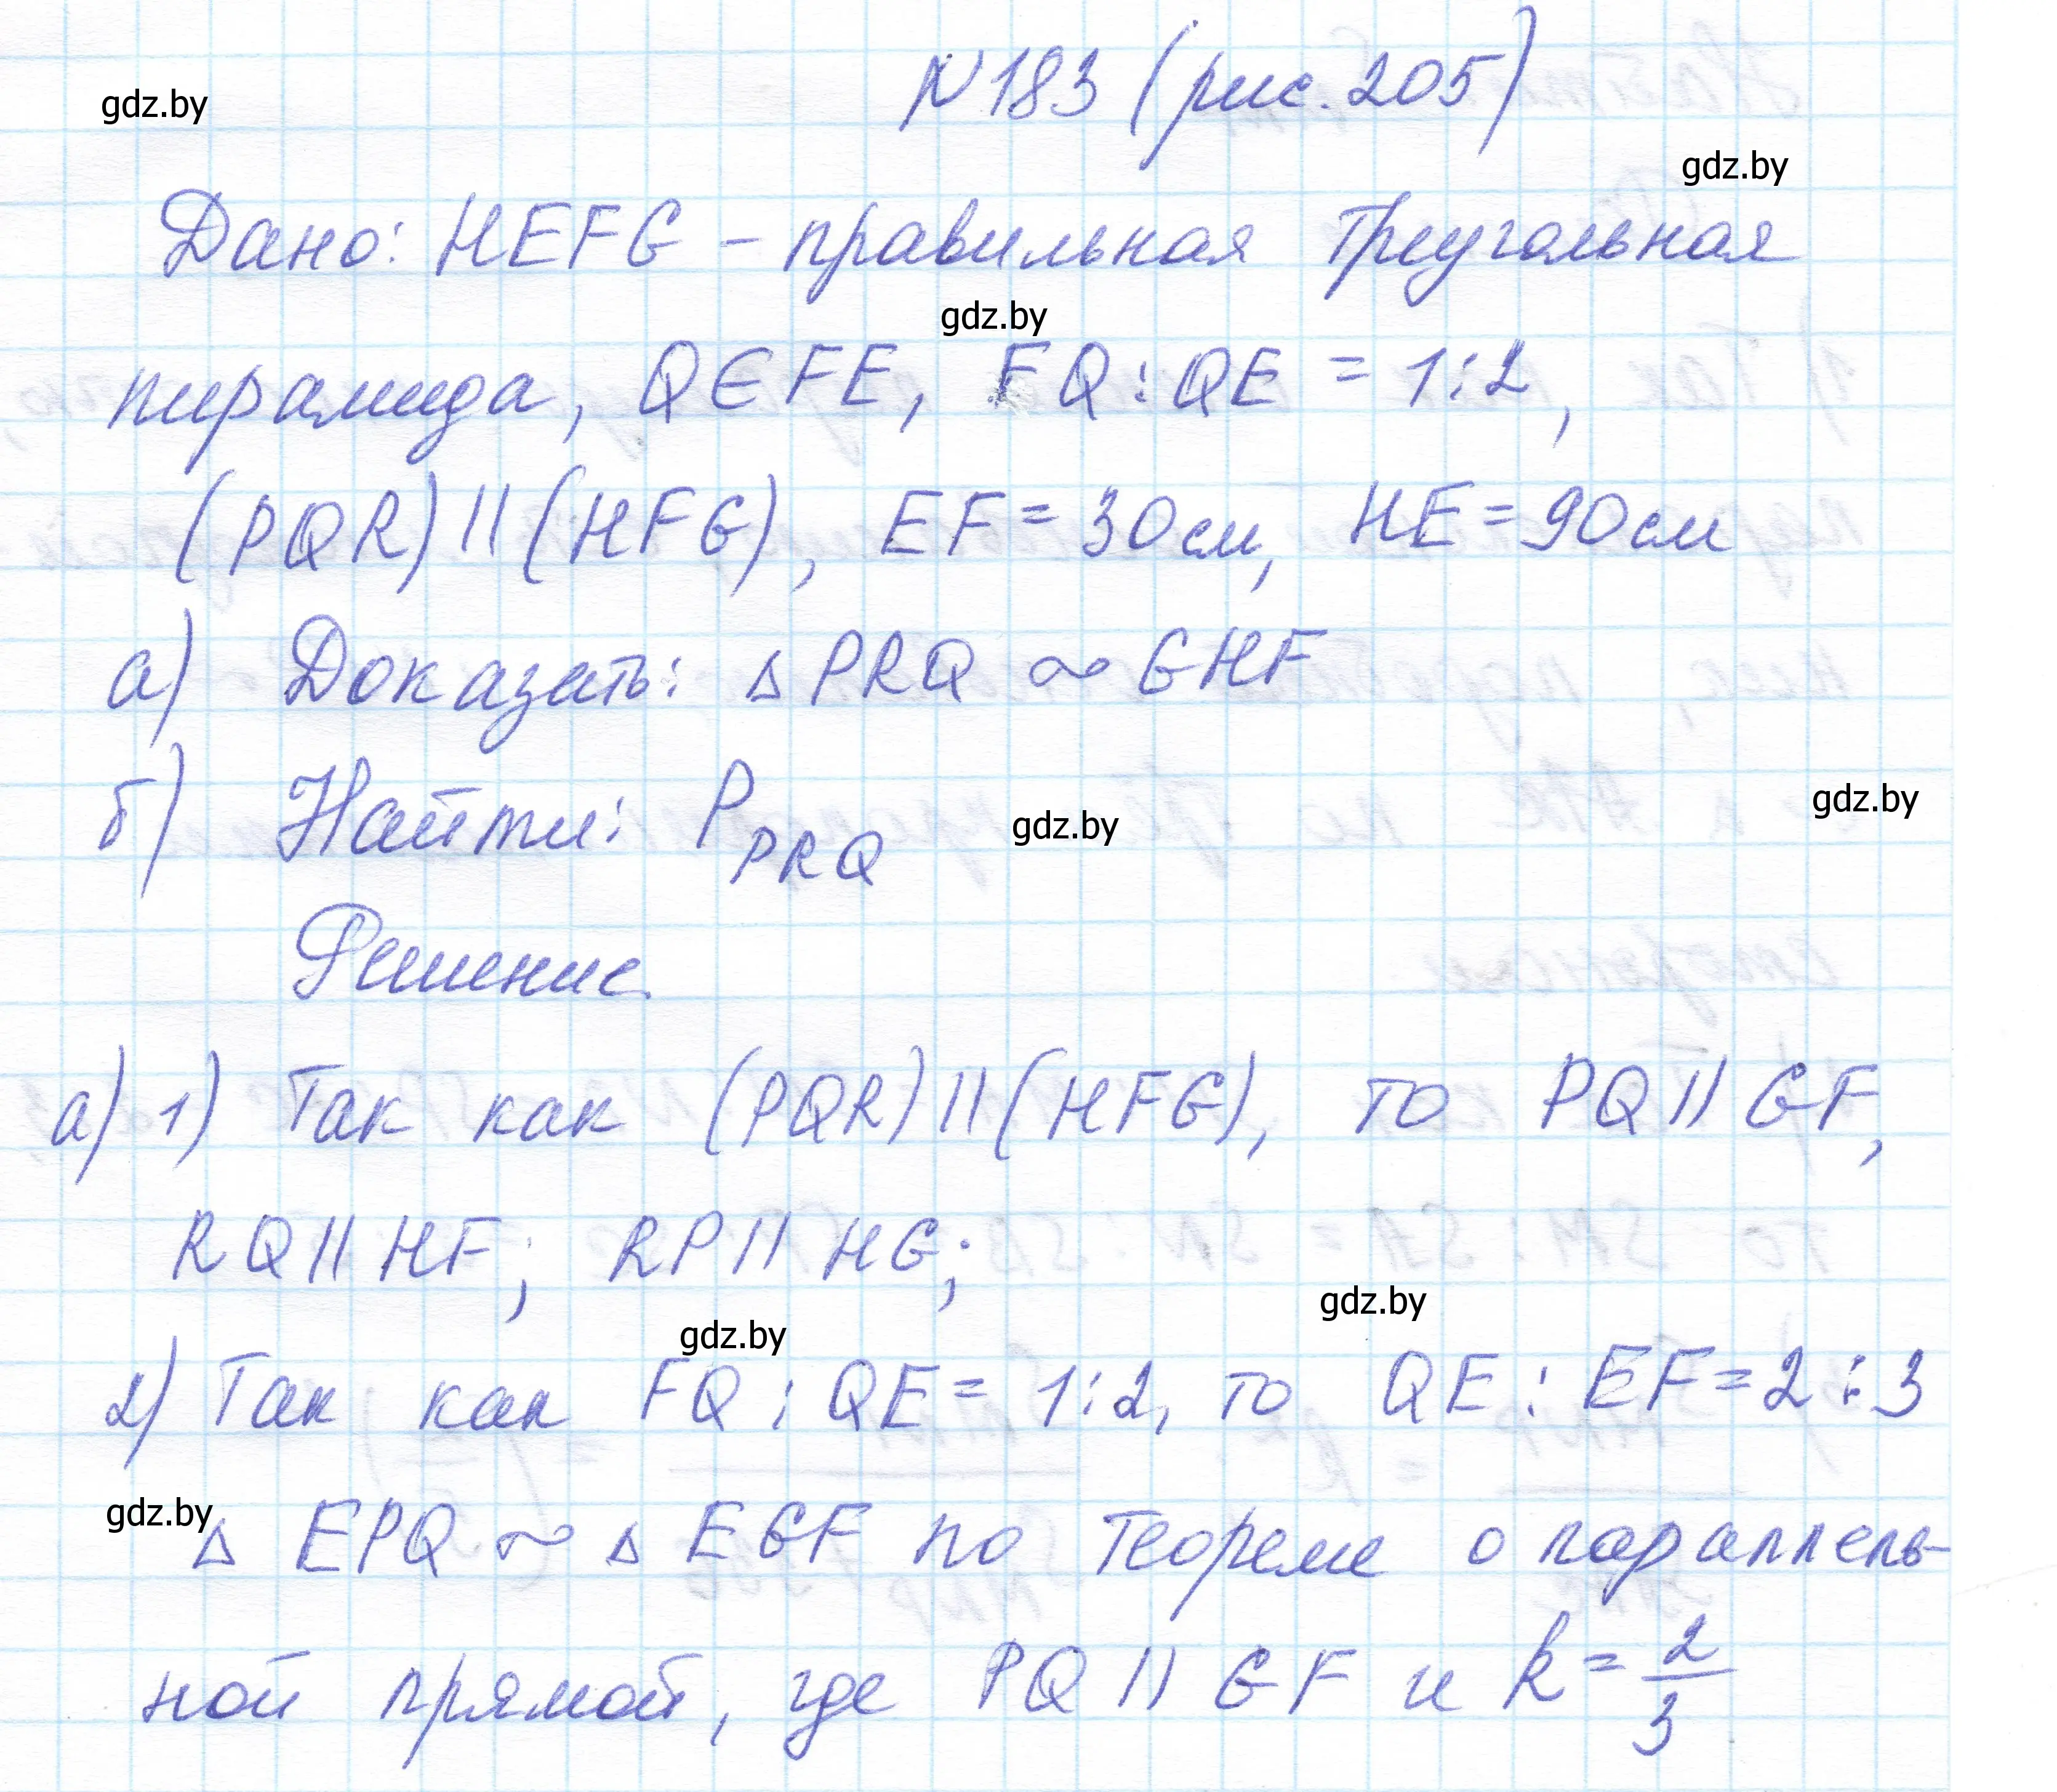 N 183 (рис. 205)
gdz.by
gdz.by
Дано: HEFG – правильная треугольная
gdz.by
пирамида, Q∈FE, FQ:QE = 1:2,
(PQR) || (HFG), EF = 30см, HE = 90см
а) Доказать: △ PRQ ~ GHF
б) Найти: P_PRQ
gdz.by
gdz.by
Решение.
а) 1) Так как (PQR) || (HFG), то PQ || GF,
RQ || HF; RP || HG;
gdz.by
gdz.by
2) Так как FQ : QE = 1:2, то QE : EF = 2 : 3
gdz.by
△ EPQ ~ △ EGF по теореме о параллель-
ной прямой, где PQ || GF и k = 2/3